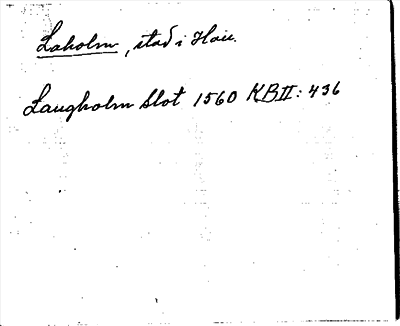 Laholm, stad i Hall.
Laugholm Slot 1560 KBII: 436